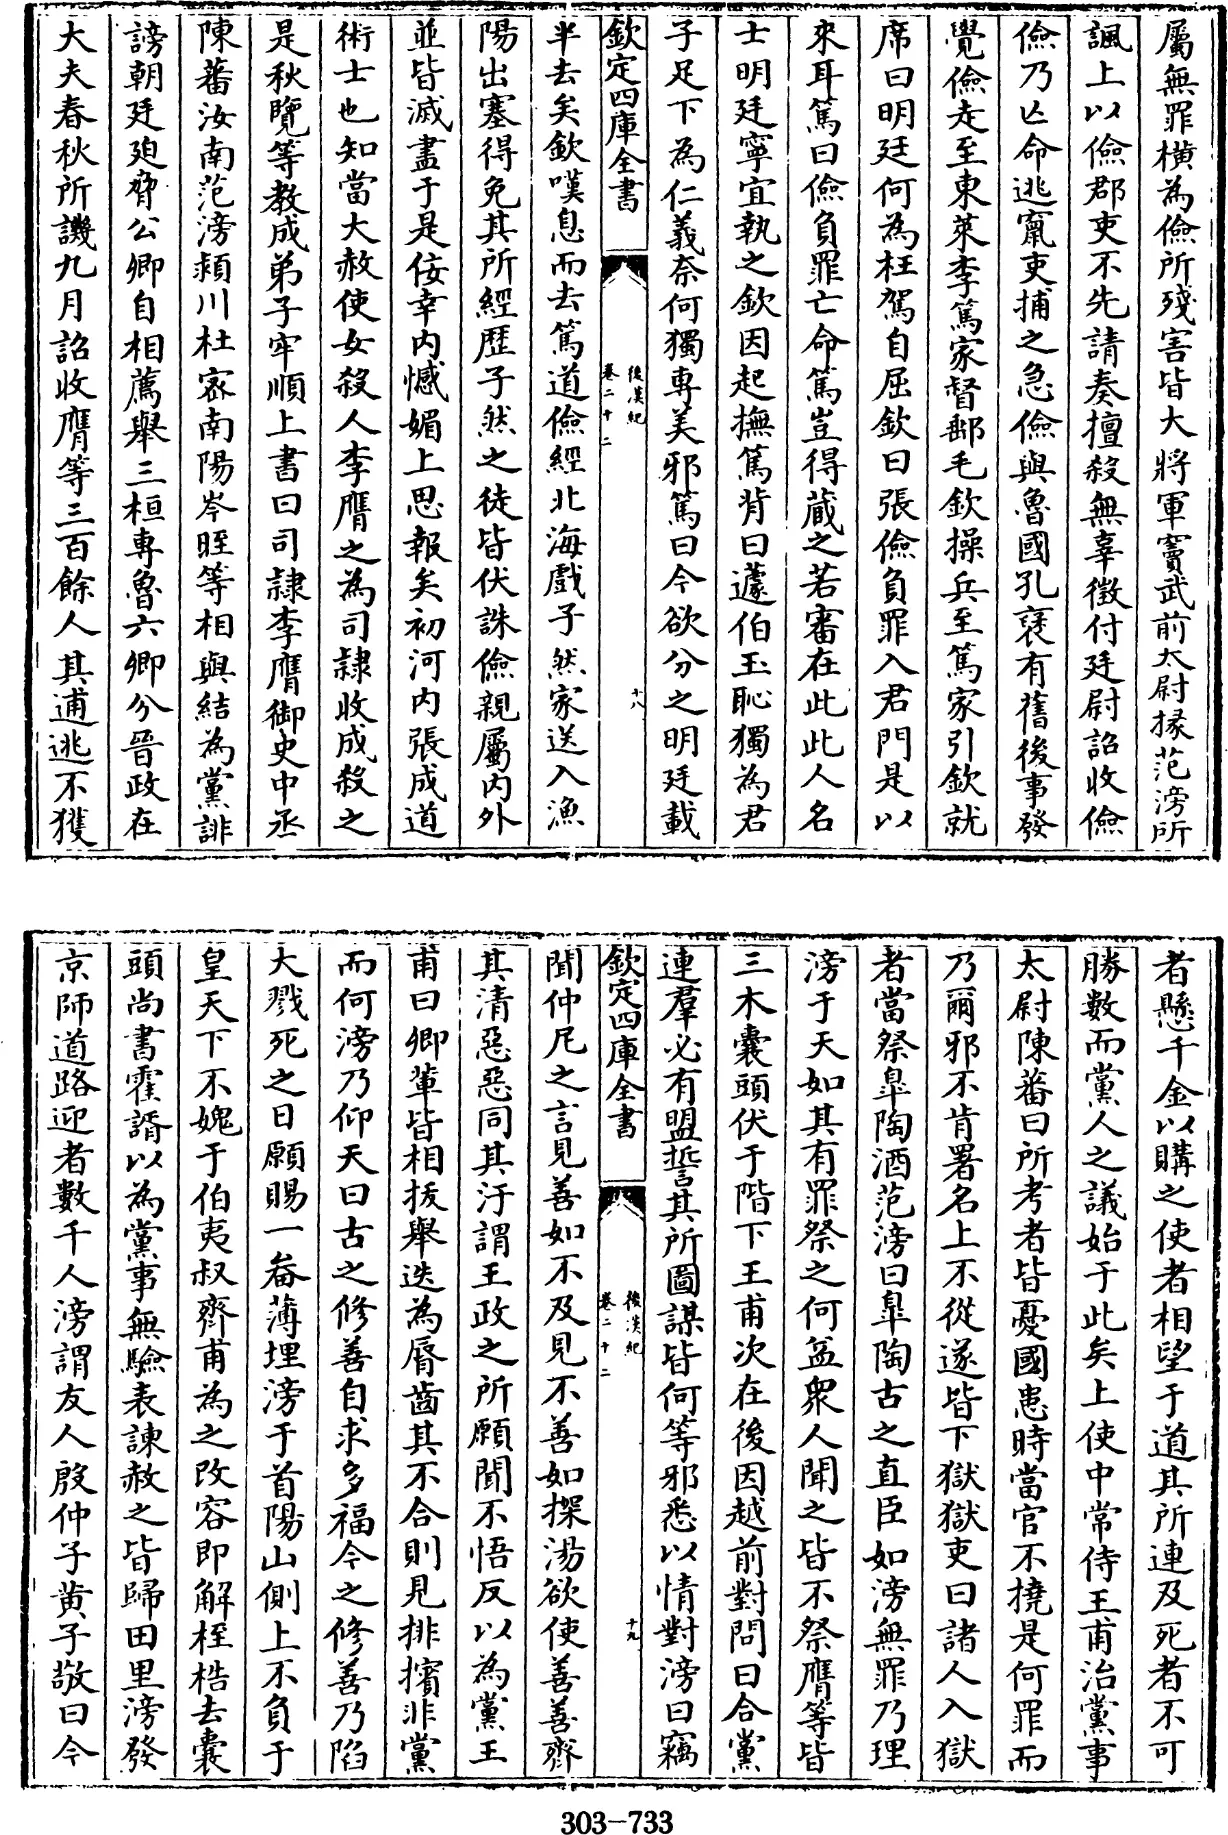 屬無罪橫為儉所殘害皆大將軍竇武前太尉掾范滂所
諷上以儉郡吏不先請奏擅殺無辜徵付廷尉詔收儉
儉乃亡命逃竄吏捕之急儉與魯國孔褒有舊後事發
覺儉走至東萊李篤家督郵毛欽操兵至篤家引欽就
席曰明廷何為枉駕自屈欽曰張儉負罪入君門是以
來耳篤曰儉負罪亡命篤豈得藏之若審在此此人名
士明廷寧宜執之欽因起撫篤背曰蘧伯玉恥獨為君
子足下為仁義奈何獨專美邪篤曰今欲分之明廷載
欽定四庫全書
後漢紀
卷二十二
十八
半去矣欽嘆息而去篤道儉經北海戲子然家送入漁
陽出塞得免其所經歷子然之徒皆伏誅儉親屬內外
並皆滅盡于是佞幸內憾媚上思報矣初河內張成道
術士也知當大赦使女殺人李膺之為司隸收成殺之
是秋覽等教成弟子牢順上書曰司隸李膺御史中丞
陳蕃汝南范滂潁川杜宻南陽岑晊等相與結為黨誹
謗朝廷廹脅公卿自相薦舉三桓專魯六卿分晉政在
大夫春秋所譏九月詔收膺等三百餘人其逋逃不獲
者懸千金以購之使者相望于道其所連及死者不可
勝數而黨人之議始于此矣上使中常侍王甫治黨事
太尉陳蕃曰所考者皆憂國患時當官不撓是何罪而
乃爾邪不肯署名上不從遂皆下獄獄吏曰諸人入獄
者當祭臯陶酒范滂曰臯陶古之直臣如滂無罪乃理
滂于天如其有罪祭之何益衆人聞之皆不祭膺等皆
三木囊頭伏于階下王甫次在後因越前對問曰合黨
連羣必有盟誓其所圖謀皆何等邪悉以情對滂曰竊
欽定四庫全書
後漢紀
卷二十二
十九
聞仲尼之言見善如不及見不善如探湯欲使善善齊
其清惡惡同其汙謂王政之所願聞不悟反以為黨王
甫曰卿輩皆相拔舉迭為脣齒其不合則見排擯非黨
而何滂乃仰天曰古之修善自求多福今之修善乃陷
大戮死之日願賜一畚薄埋滂于首陽山側上不負于
皇天下不媿于伯夷叔齊甫為之改容即解桎梏去囊
頭尚書霍諝以為黨事無驗表諫赦之皆歸田里滂發
京師道路迎者數千人滂謂友人殷仲子黄子敬曰今
303-733